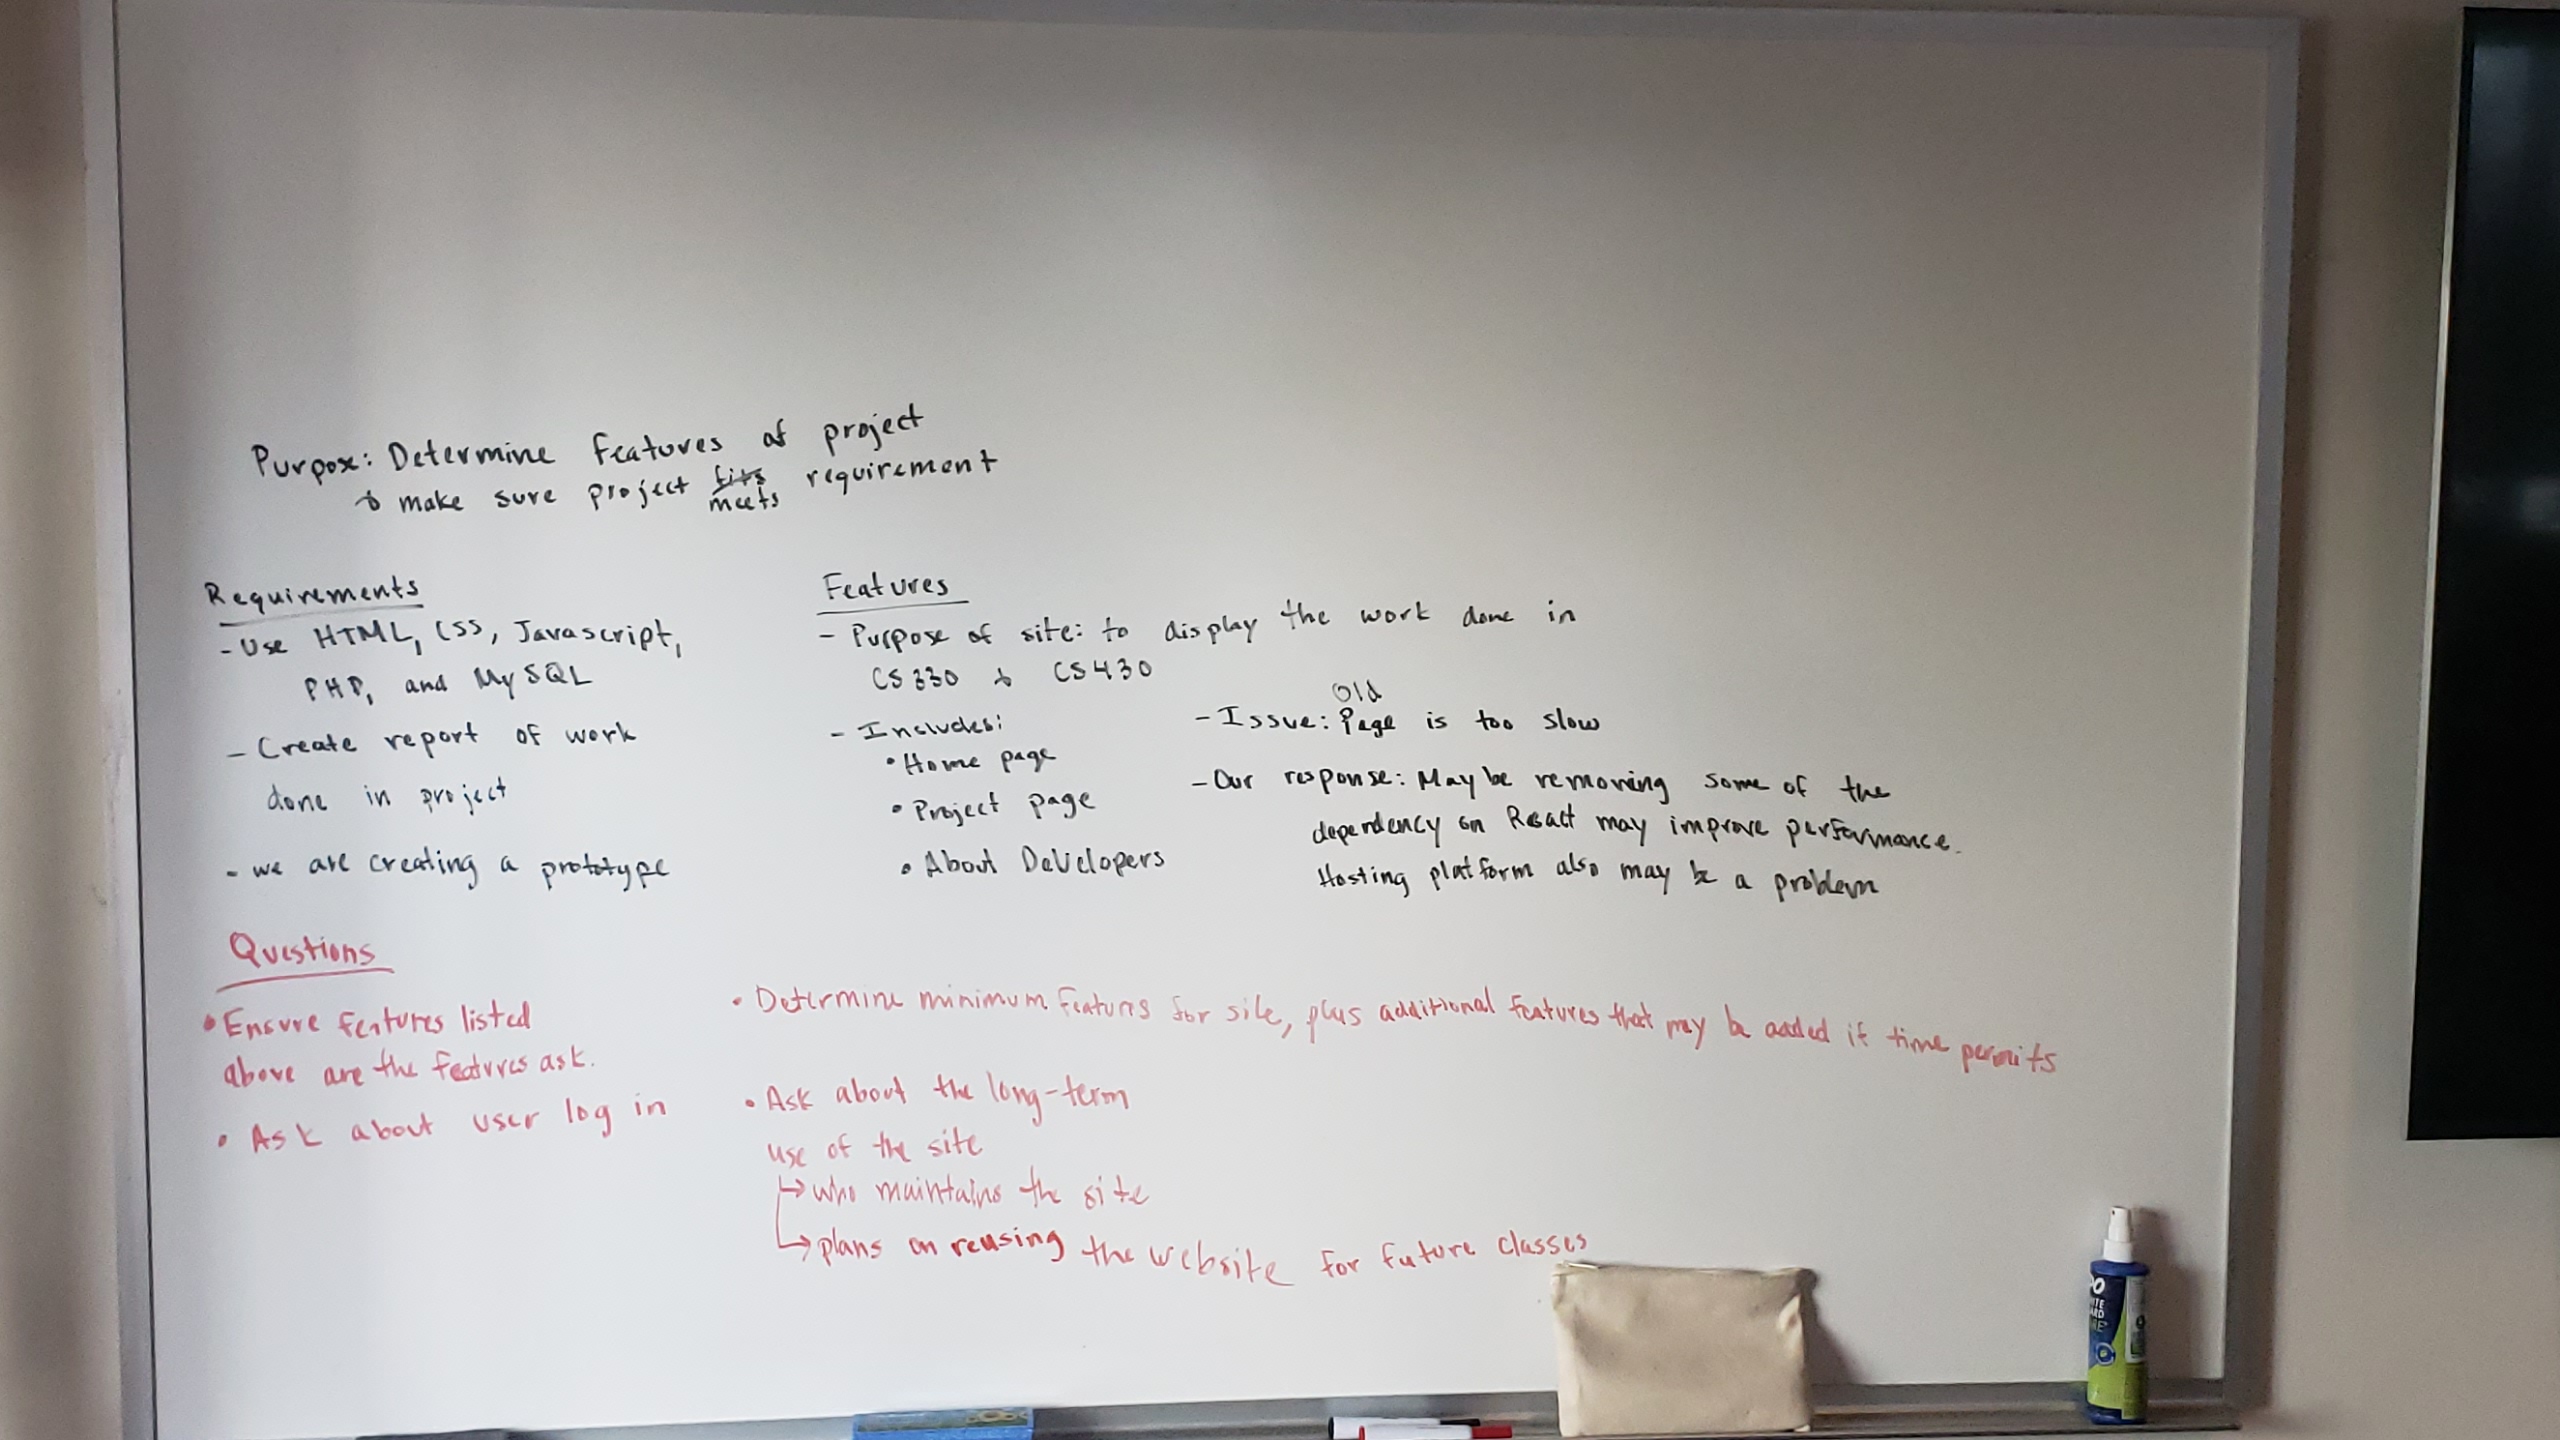 Purpose: Determine features of project
& make sure project fits meets requirement
Requirements
- Use HTML, CSS, Javascript,
PHP, and MySQL
- Create report of work
done in project
- we are creating a prototype
Features
- Purpose of site: to display the work done in
CS 330 & CS 430
- Includes:
• Home page
• Project page
• About Developers
Old
- Issue: Page is too slow
- Our response: Maybe removing some of the
dependency on React may improve performance.
Hosting platform also may be a problem
Questions
• Ensure features listed
above are the features ask.
• Ask about user log in
• Determine minimum features for site, plus additional features that may be added if time permits
• Ask about the long-term
use of the site
↳ who maintains the site
↳ plans on reusing the website for future classes